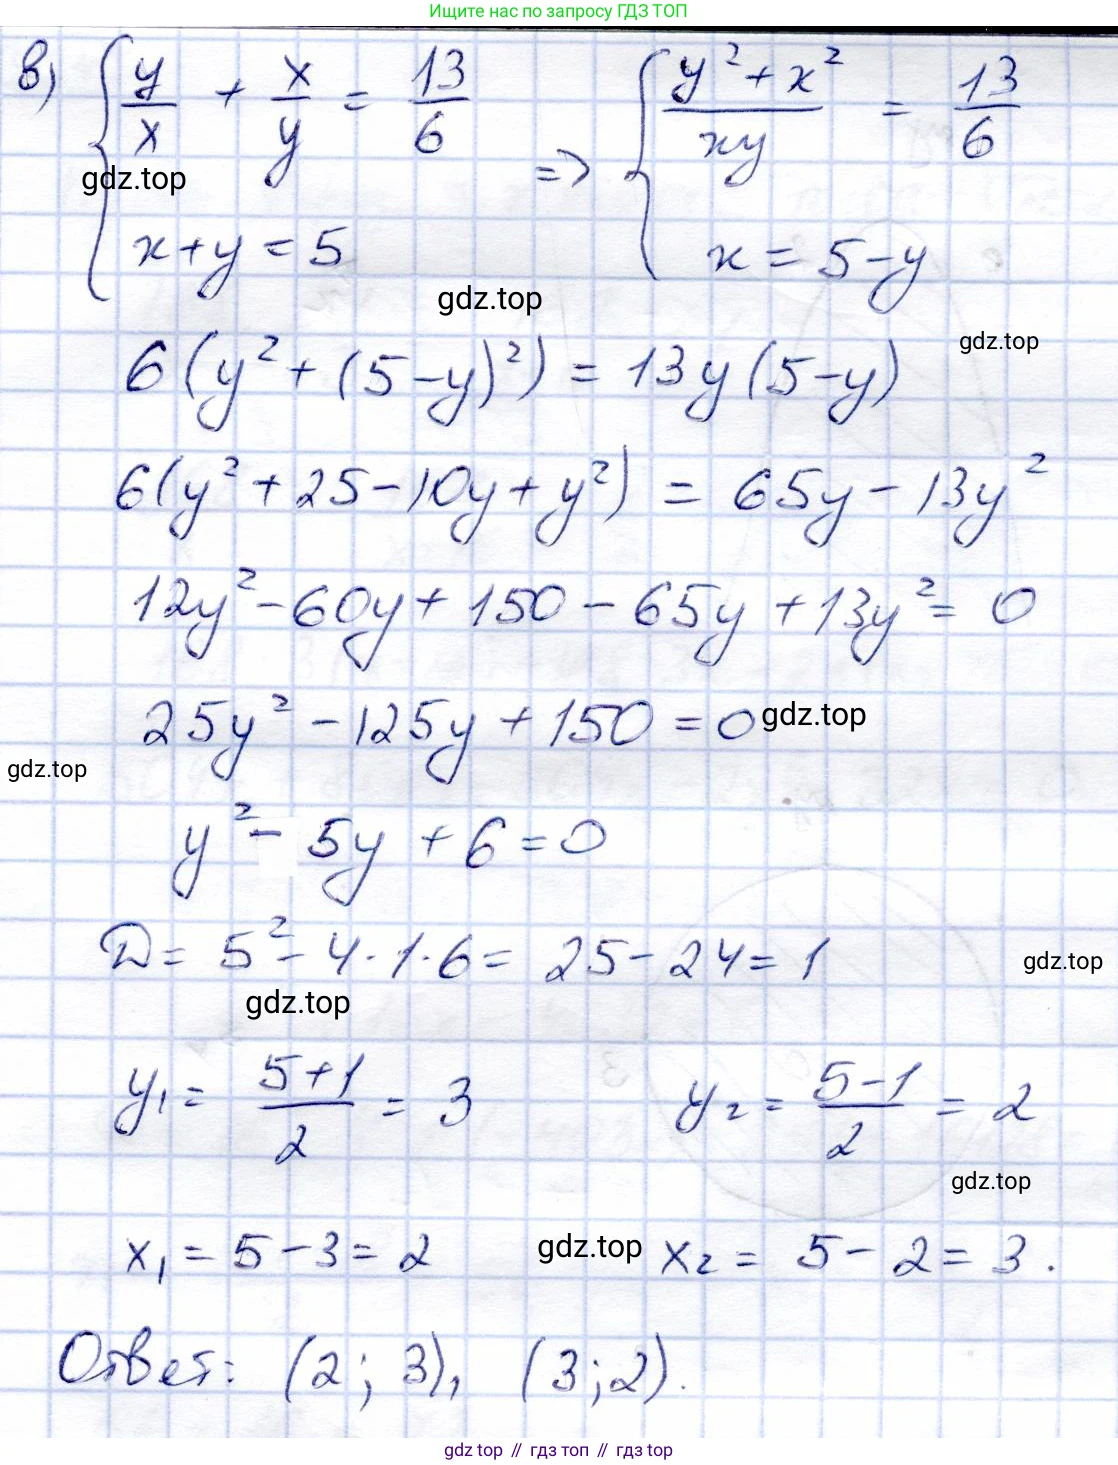 Ищите нас по запросу ГДЗ ТОП
в) { y/x + x/y = 13/6 => { (y² + x²)/(xy) = 13/6
gdz.top
x + y = 5 x = 5 - y
gdz.top
gdz.top
6(y² + (5-y)²) = 13y(5-y)
6(y² + 25 - 10y + y²) = 65y - 13y²
12y² - 60y + 150 - 65y + 13y² = 0
25y² - 125y + 150 = 0
gdz.top
gdz.top
y² - 5y + 6 = 0
D = 5² - 4·1·6 = 25 - 24 = 1
gdz.top
gdz.top
y₁ = (5+1)/2 = 3 y₂ = (5-1)/2 = 2
gdz.top
x₁ = 5 - 3 = 2 gdz.top x₂ = 5 - 2 = 3.
Ответ: (2; 3), (3; 2).
gdz top // гдз топ // гдз top